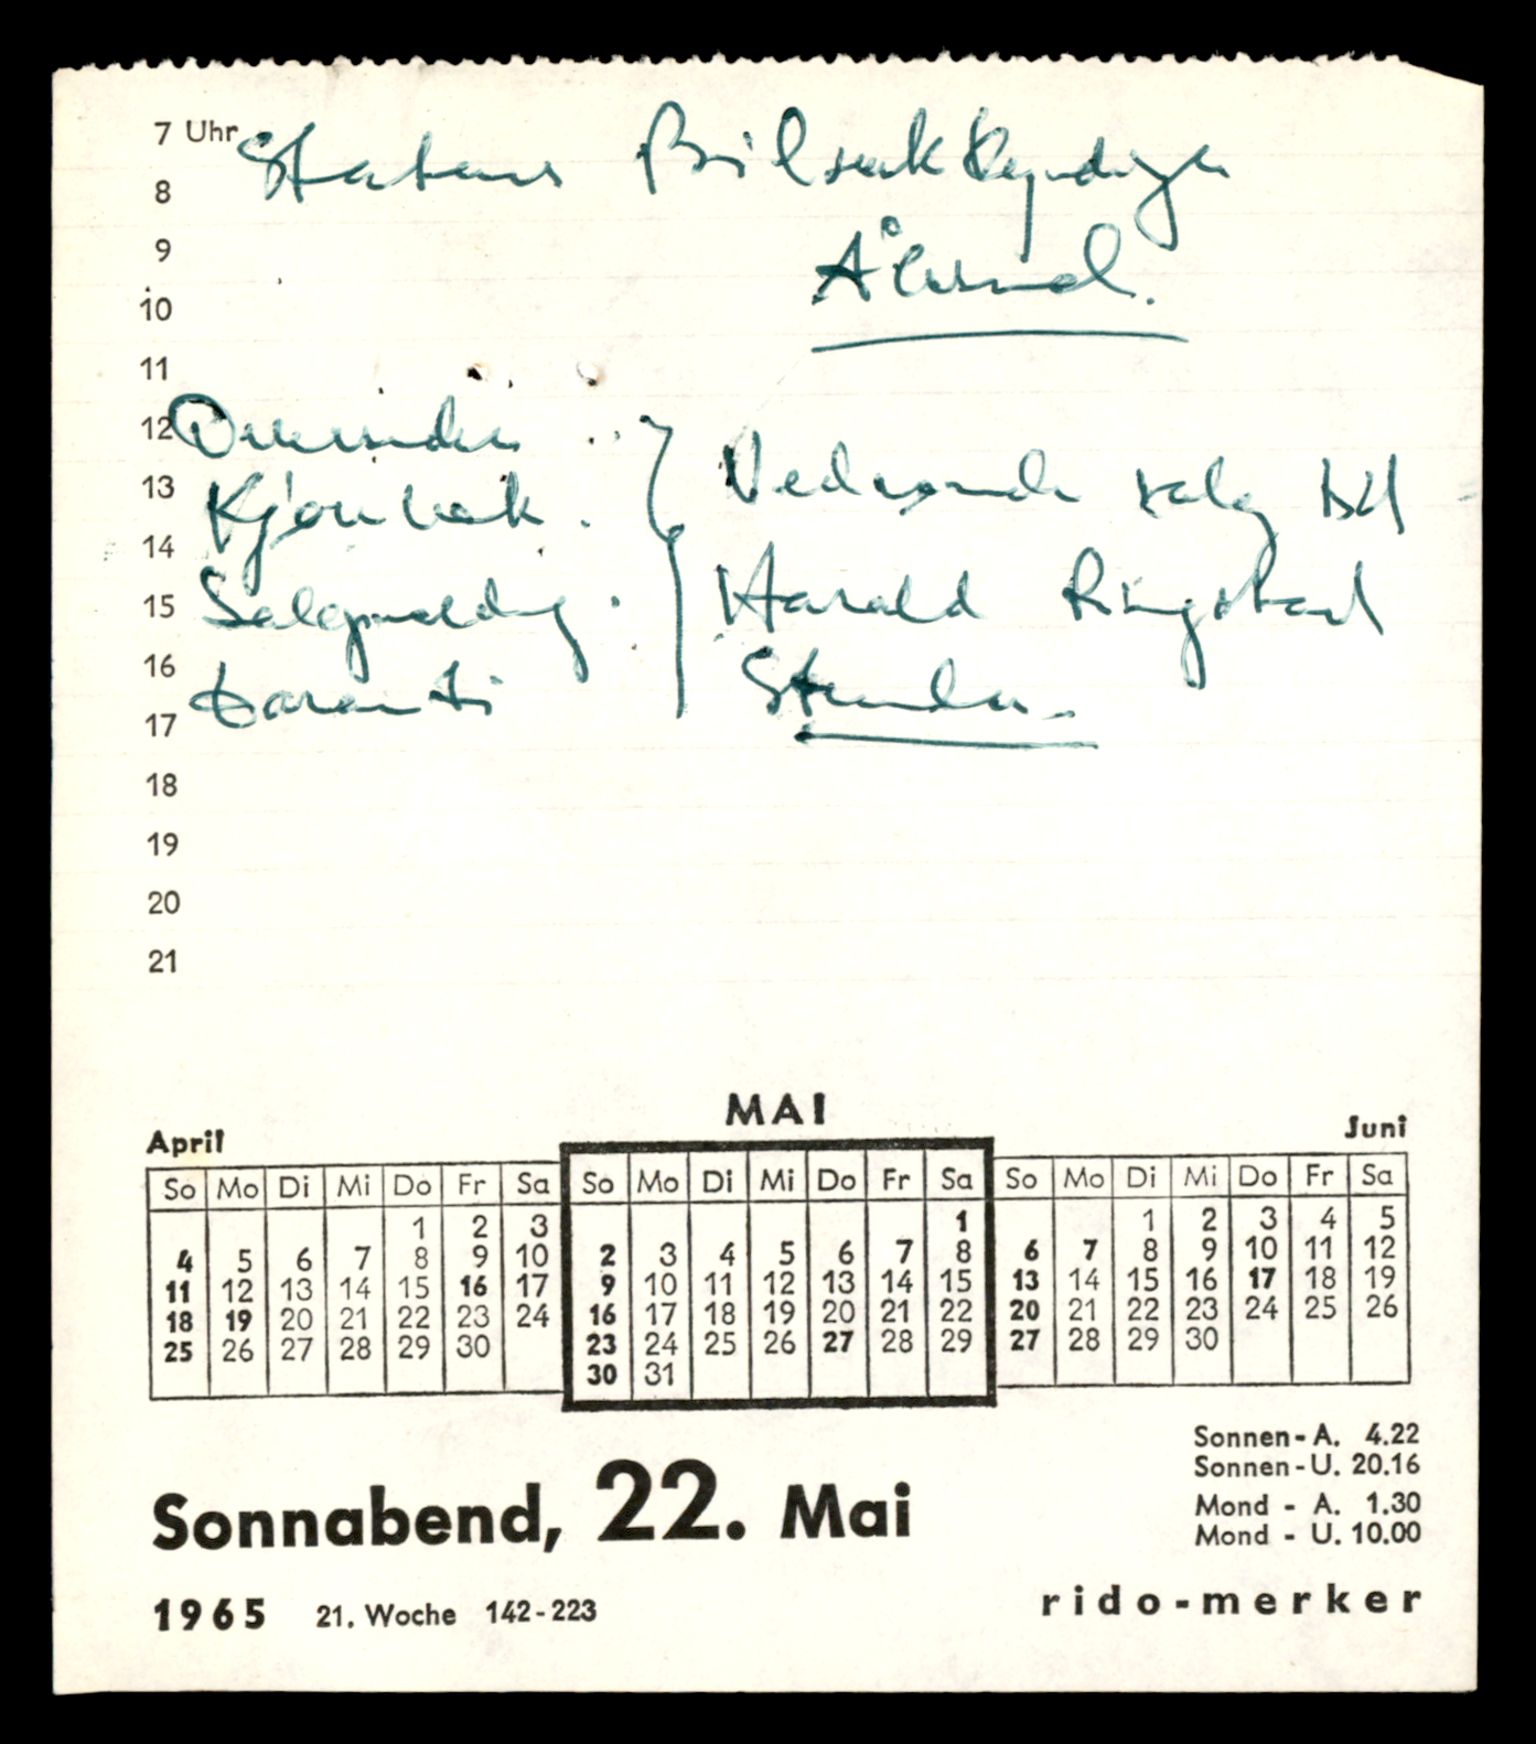 7 Uhr Statens Bilsakkyndige
8
9 Ålesund.
10
11
12
13 Kjørebok. Vedrørende salg til
14
15 Salgsmelding. Harald Ringstad
16 Garanti Stranda.
17
18
19
20
21
MAI
April Juni
So Mo Di Mi Do Fr Sa So Mo Di Mi Do Fr Sa So Mo Di Mi Do Fr Sa
1 2 3 1 1 2 3 4 5
4 5 6 7 8 9 10 2 3 4 5 6 7 8 6 7 8 9 10 11 12
11 12 13 14 15 16 17 9 10 11 12 13 14 15 13 14 15 16 17 18 19
18 19 20 21 22 23 24 16 17 18 19 20 21 22 20 21 22 23 24 25 26
25 26 27 28 29 30 23 24 25 26 27 28 29 27 28 29 30
30 31
Sonnen-A. 4.22
Sonnen-U. 20.16
Mond - A. 1.30
Mond - U. 10.00
Sonnabend, 22. Mai
1965 21. Woche 142-223
rido-merker